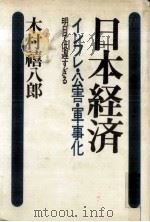 日本経済
インフレ・公害・軍事化
明日では遅すぎる
木村禧八郎